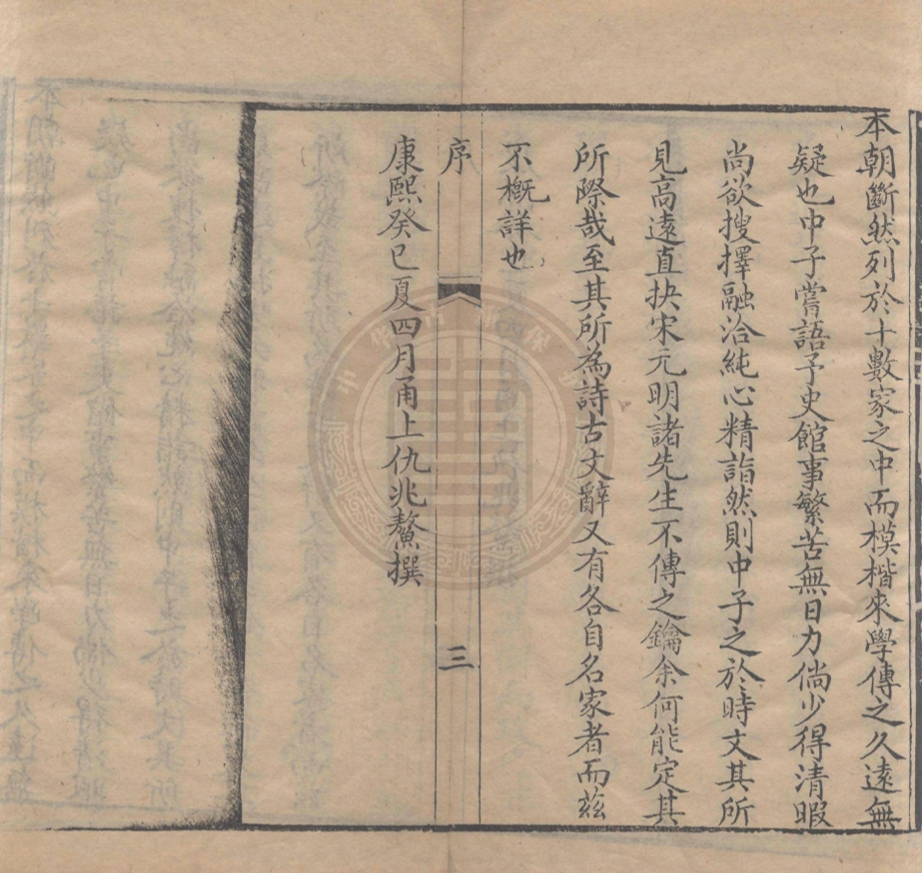 本朝斷然列於十數家之中而模楷來學傳之久遠無
疑也中子嘗語予史館事繁苦無日力倘少得清暇
尚欲搜擇融洽純心精詣然則中子之於時文其所
見高遠直抉宋元明諸先生不傳之鑰余何能定其
所際哉至其所為詩古文辭又有各自名家者而茲
不槪詳也
序
三
康熙癸巳夏四月甬上仇兆鰲撰